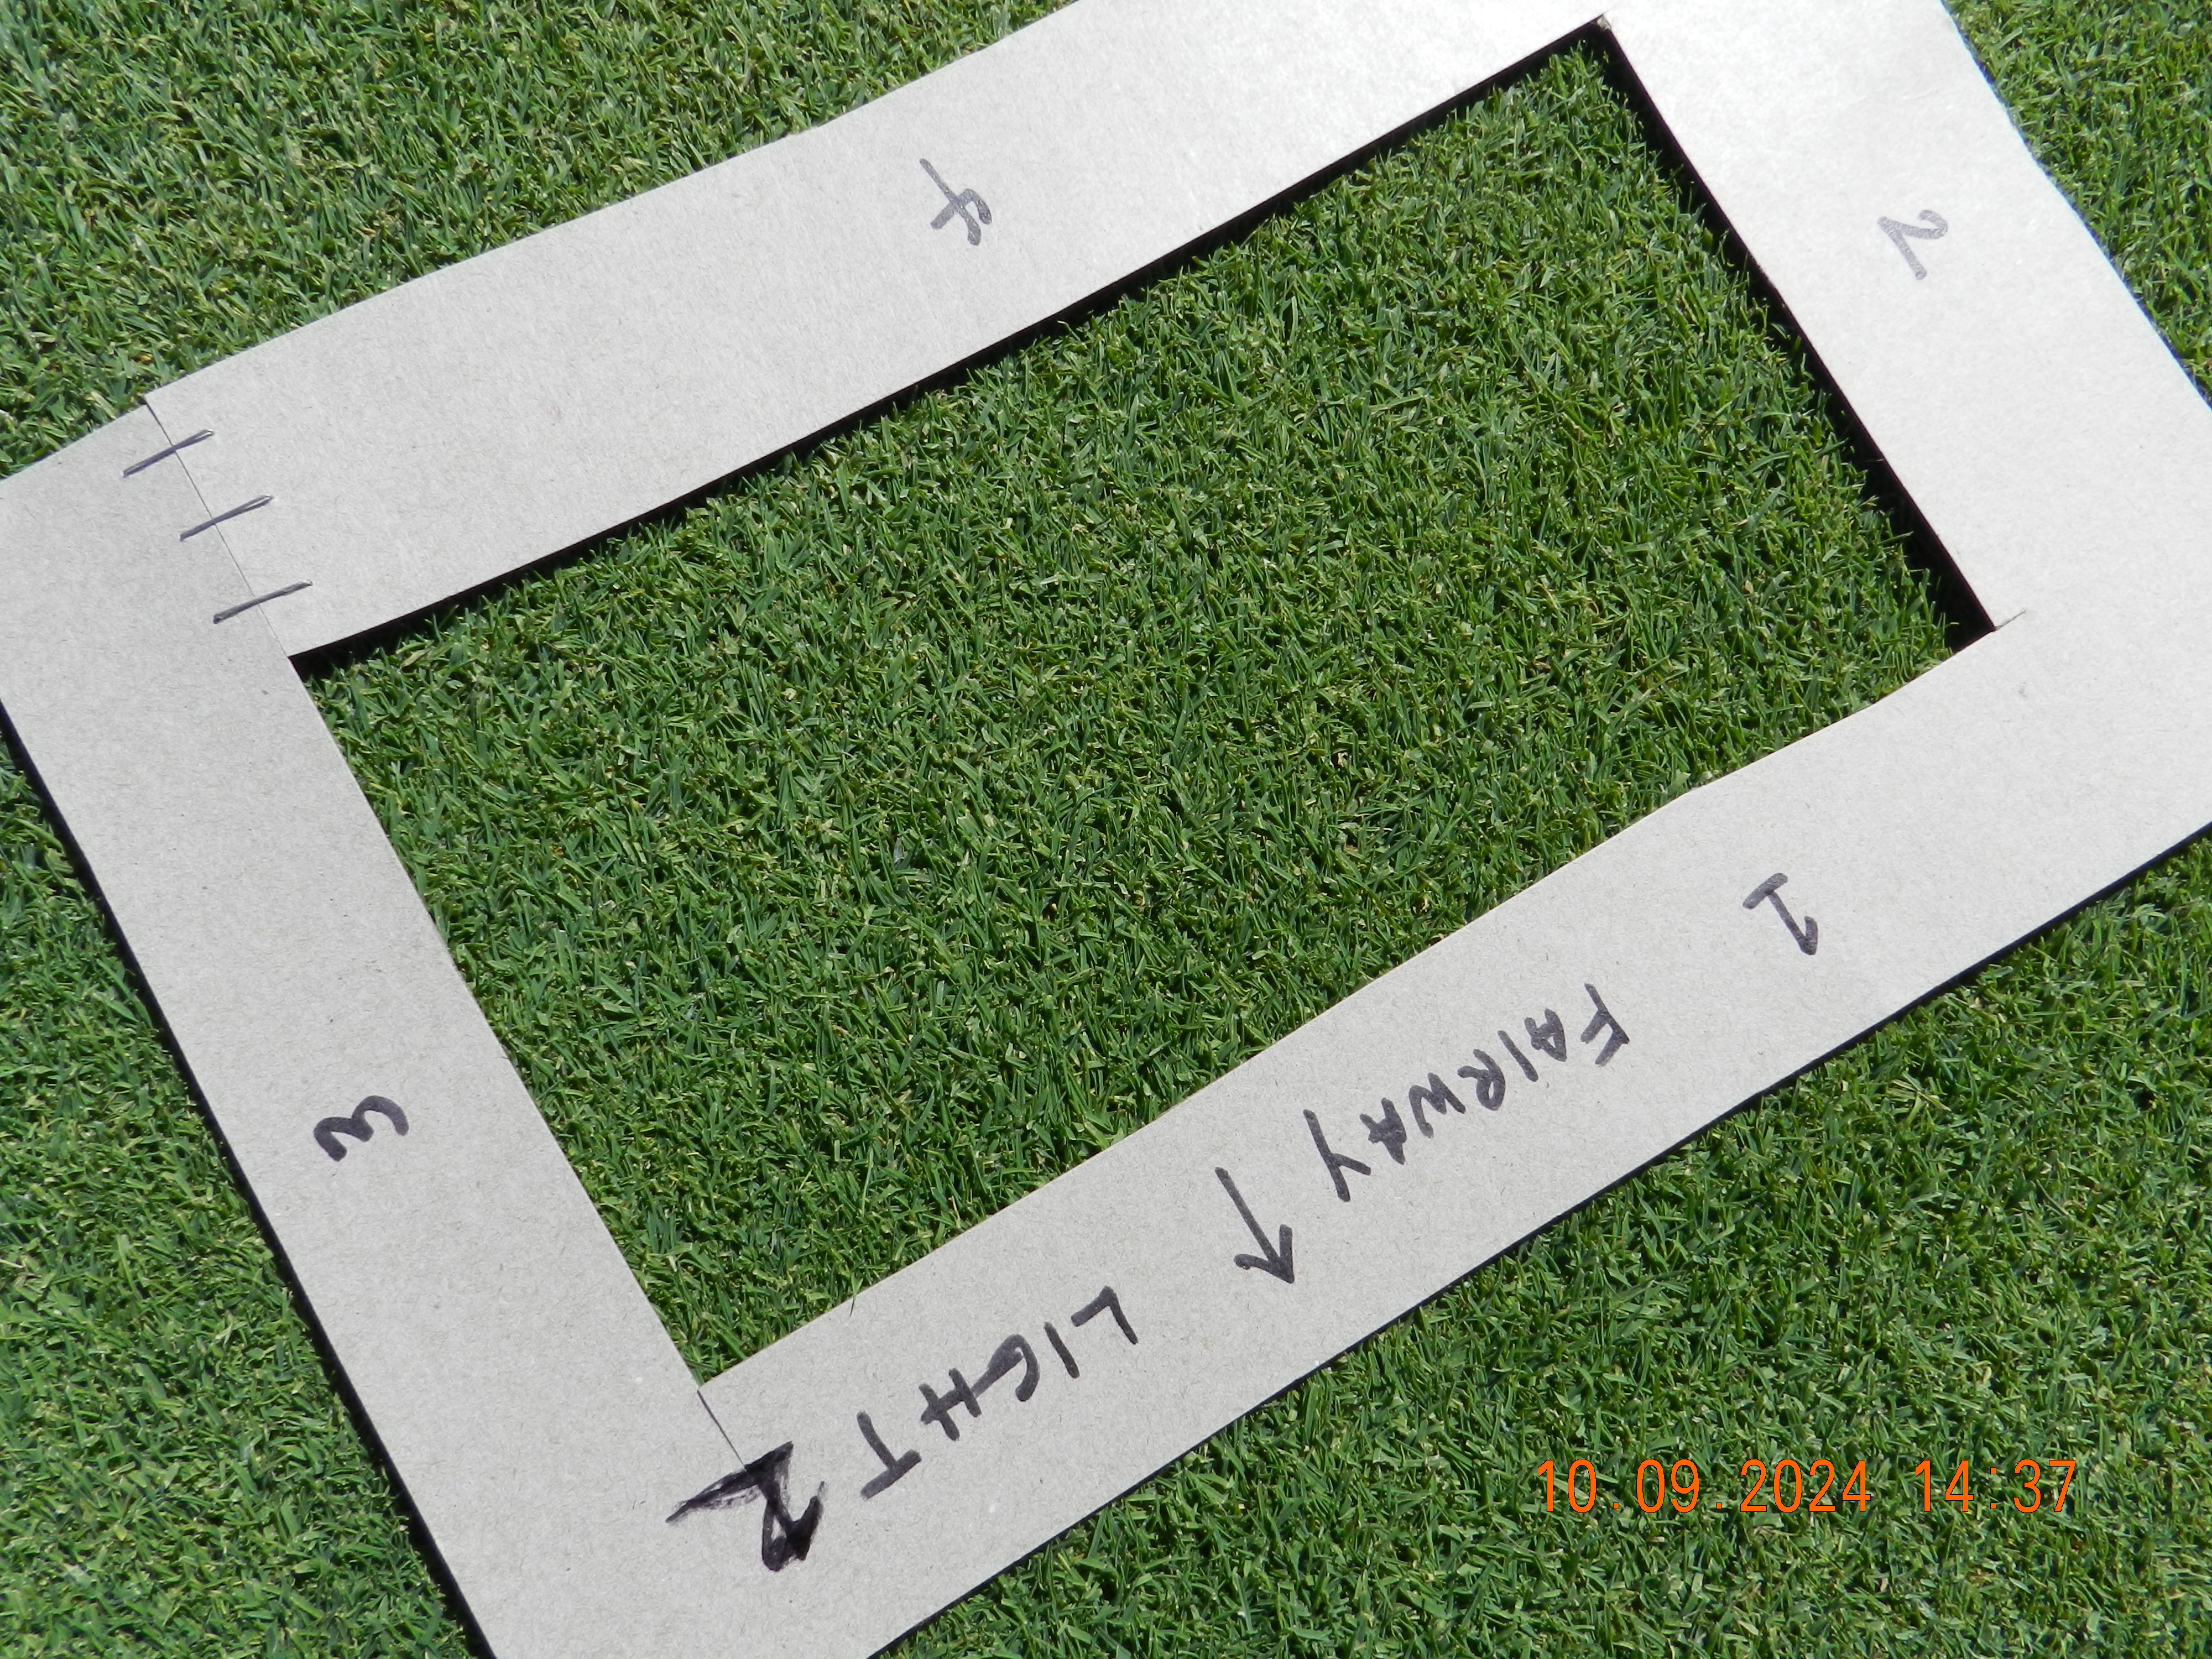 4
2
1
FAIRWAY ↑
LIGHT 2
3
10.09.2024 14:37